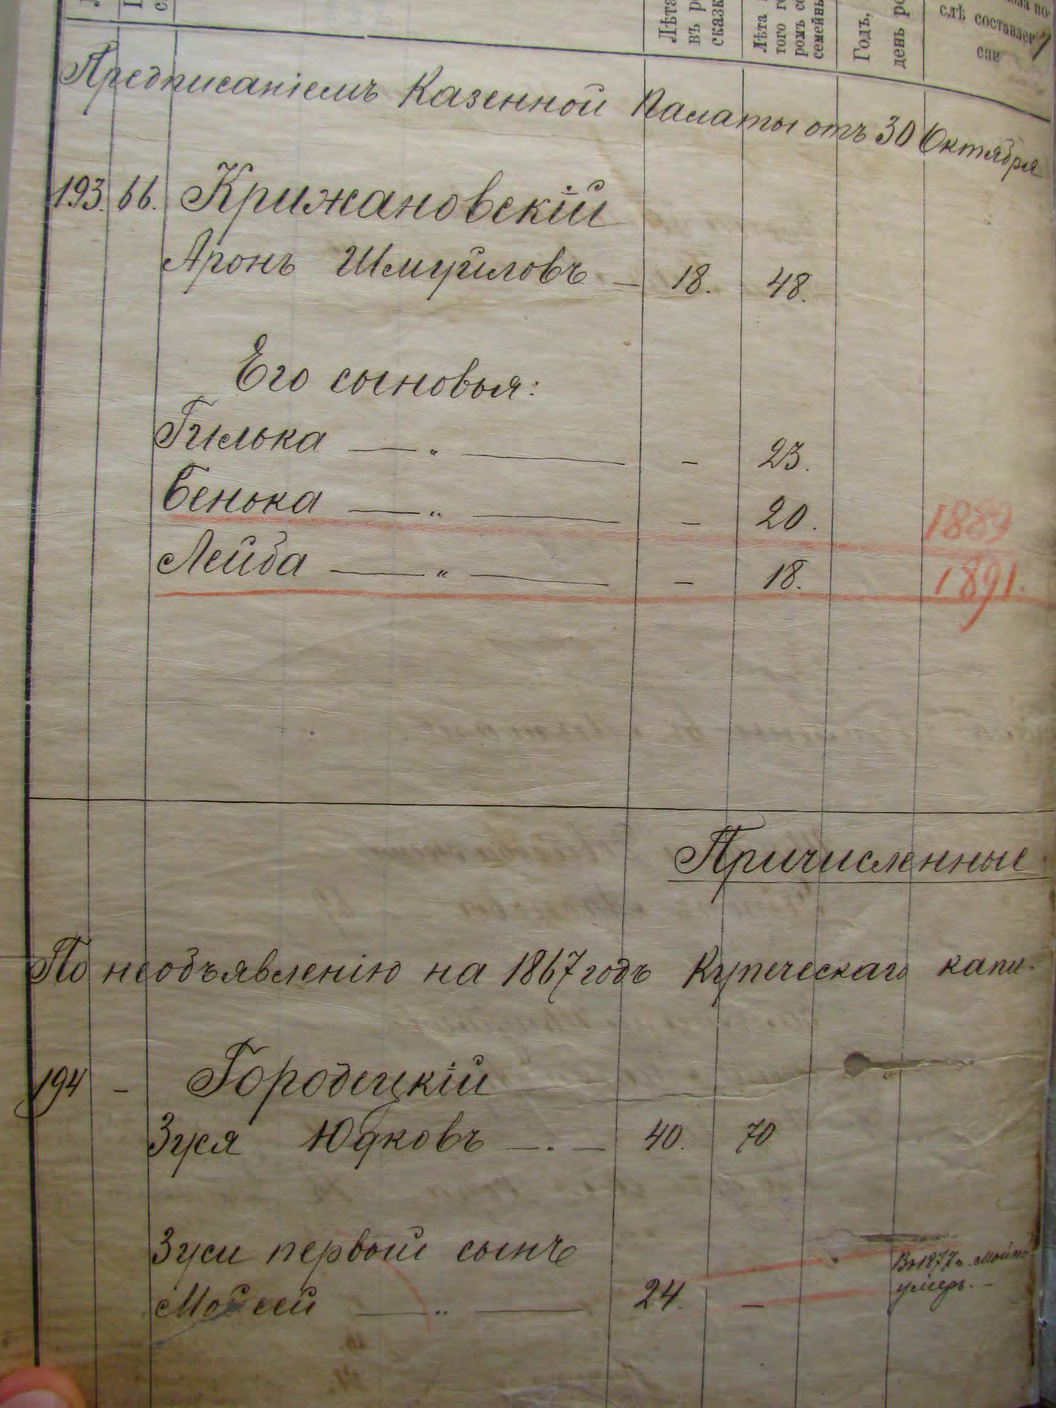 Лѣта
въ р
сказк
Лѣта
того г
ромъ со
семейны
Годъ,
день ро
слѣ составлен
сни
Предписаніемъ Казенной Палаты отъ 30 Октября
193. 66. Крижановскій
Аронъ Шмуйловъ — 18. 48.
Его сыновья:
Гилька — „ — - 23.
Бенька — „ — - 20. 1889
Лейба — „ — - 18. 1891.
Причисленные
По необъявленію на 1867 годъ Купеческаго капи-
194 - Городецкій
Зуся Юдковъ — . — 40. 70
Зуси первый сынъ
Мойсей — „ — 24. — Въ 1877 г. Мойсей
умеръ. —